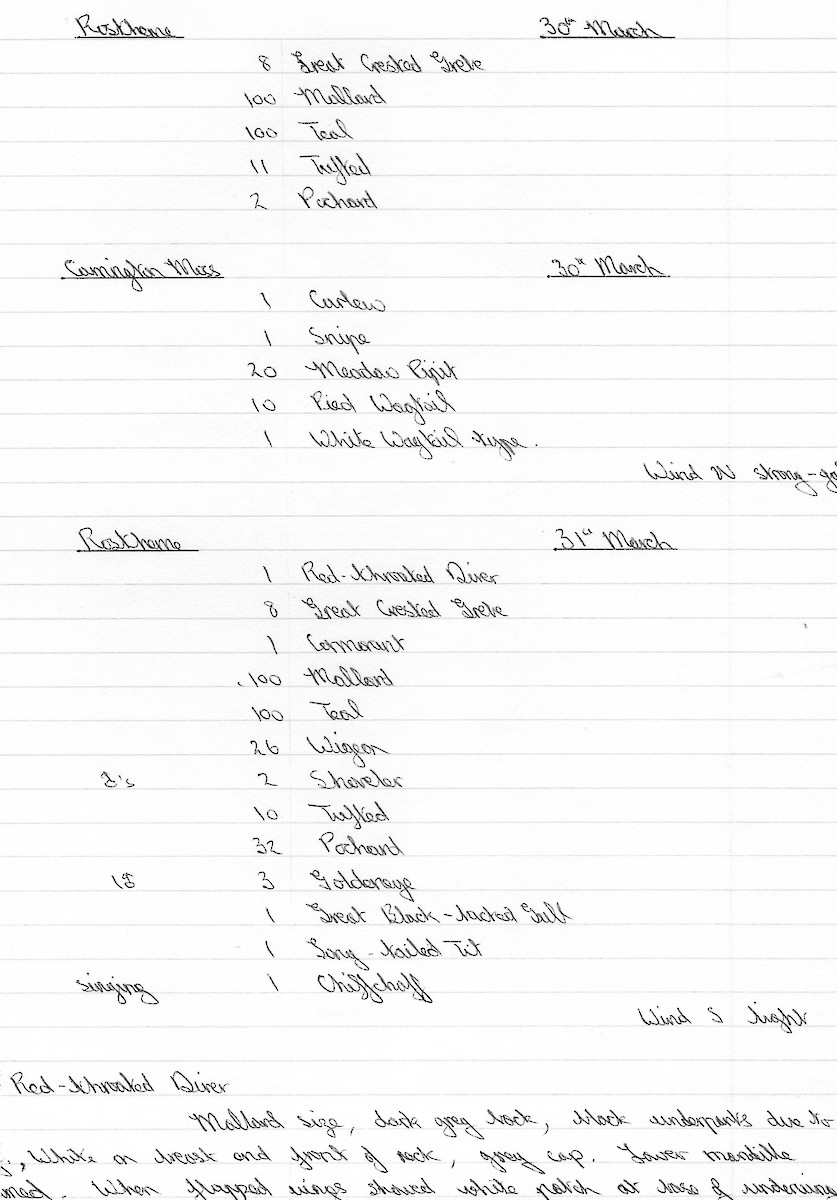 Rostherne 30th March
8 Great Crested Grebe
100 Mallard
100 Teal
11 Tufted
2 Pochard
Carrington Moss 30th March
1 Curlew
1 Snipe
20 Meadow Pipit
10 Pied Wagtail
1 White Wagtail type.
Wind W strong-ga
Rostherne 31st March
1 Red-throated Diver
8 Great Crested Grebe
1 Cormorant
100 Mallard
100 Teal
26 Wigeon
♂'s 2 Shoveler
10 Tufted
32 Pochard
1♂ 3 Goldeneye
1 Great Black-backed Gull
1 Long-tailed Tit
singing 1 Chiffchaff
Wind S light
Red-throated Diver
Mallard size, dark grey back, black underparts due to
, White on breast and front of neck, grey cap. Lower mandible
. When flapped wings showed white patch at base of underwing